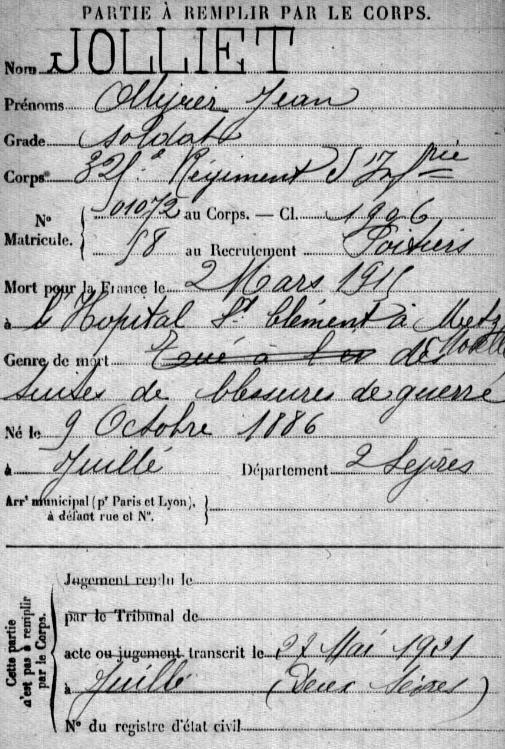 PARTIE À REMPLIR PAR LE CORPS.
Nom JOLLIET
Prénoms Jean
Grade soldat
Corps 325e Régiment d'Infrie
N° Matricule. 01072 au Corps. — Cl. 1906
58 au Recrutement Poitiers
Mort pour la France le 2 Mars 1915
à l'Hopital St Clément à Metz
Genre de mort des
suites de blessures de guerre
Né le 9 Octobre 1886
à Juillé Département 2 Sèvres
Arrt municipal (pr Paris et Lyon),
à défaut rue et N°.
Cette partie n'est pas à remplir par le Corps.
Jugement rendu le
par le Tribunal de
acte ou jugement transcrit le 27 Mai 1921
à Juillé (Deux Sèvres)
N° du registre d'état civil